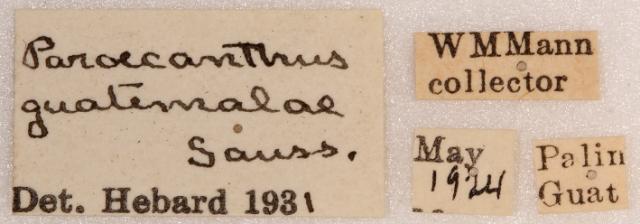 Paroecanthus
guatemalae
Sauss.
Det. Hebard 1931
WMMann
collector
May
1924
Palin
Guat